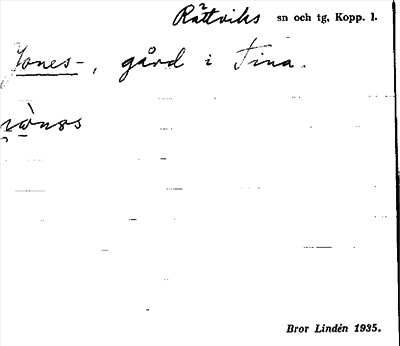 Rättviks sn och tg, Kopp. l.
Jones-, gård i Tina.
Bror Lindén 1935.